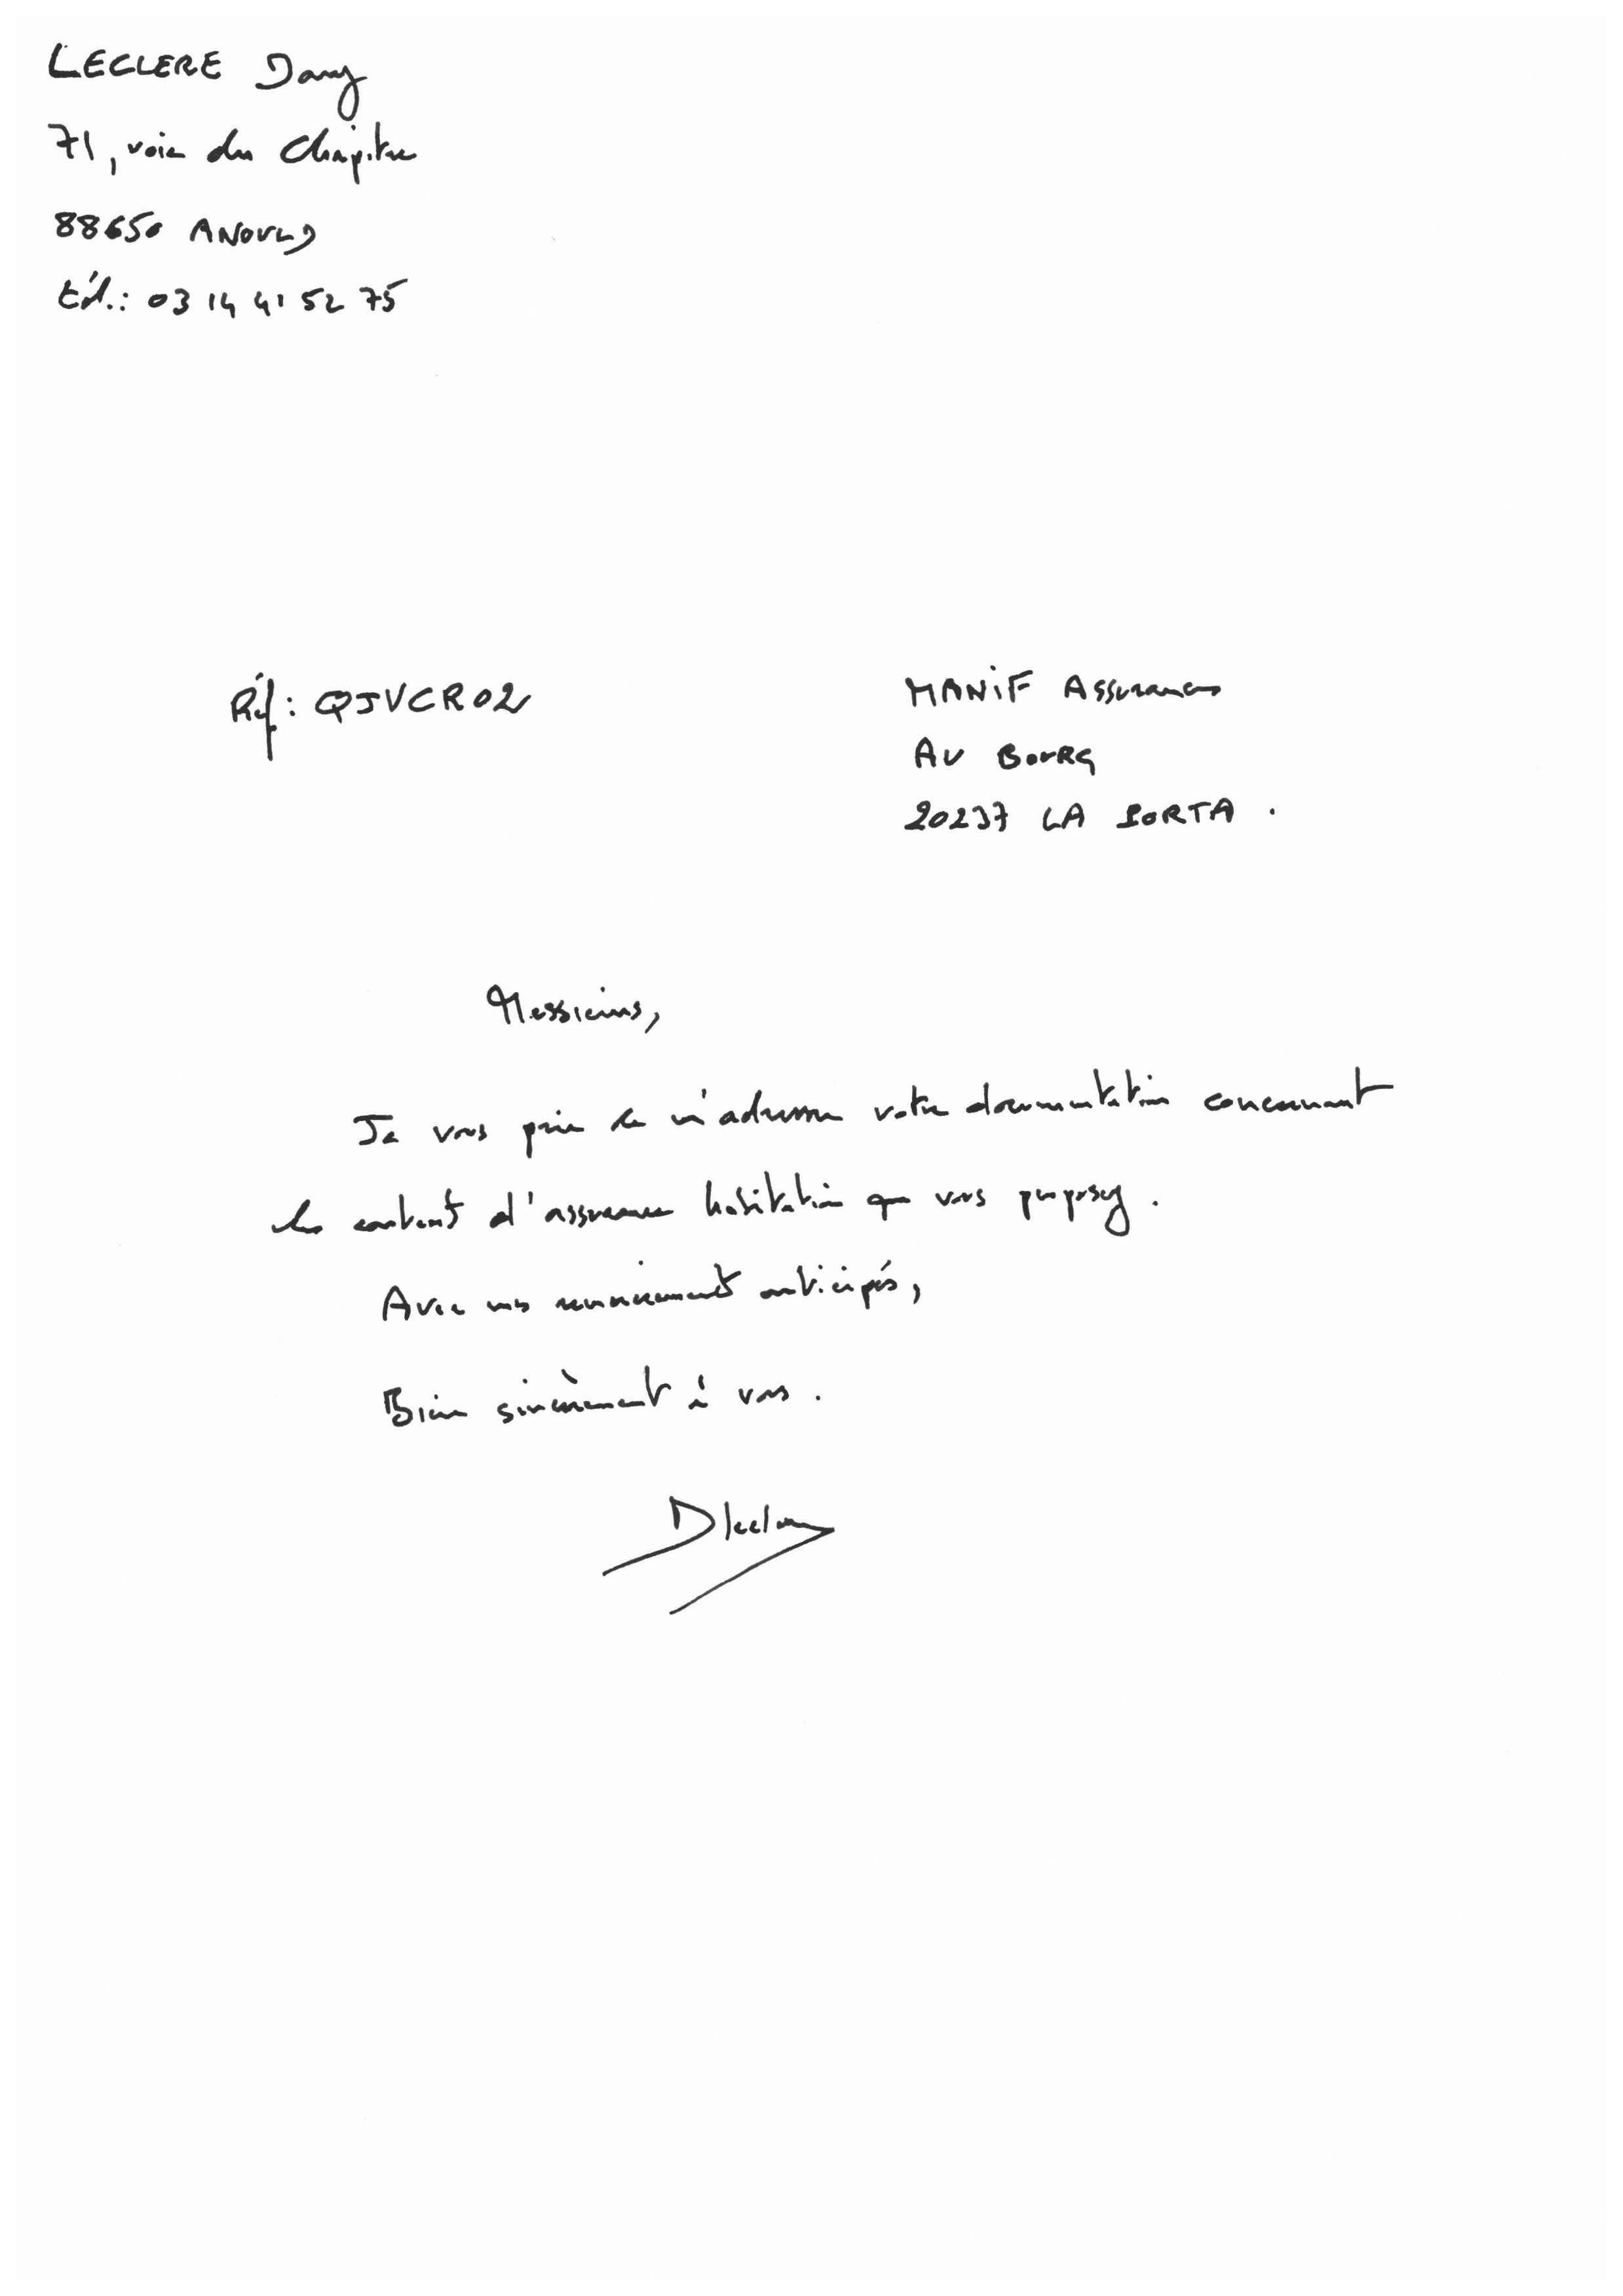 LECLERE Dany
71, voie du Chapitre
88650 ANOULD
tél.: 03 14 41 52 75
Réf: QJVCR02
MANIF Assurances
AU BOURG
20237 LA PORTA.
Messieurs,
Je vous prie de m'adresser votre documentation concernant
les contrats d'assurance habitation que vous proposez.
Avec mes remerciements anticipés,
Bien sincèrement à vous.
DLeclere